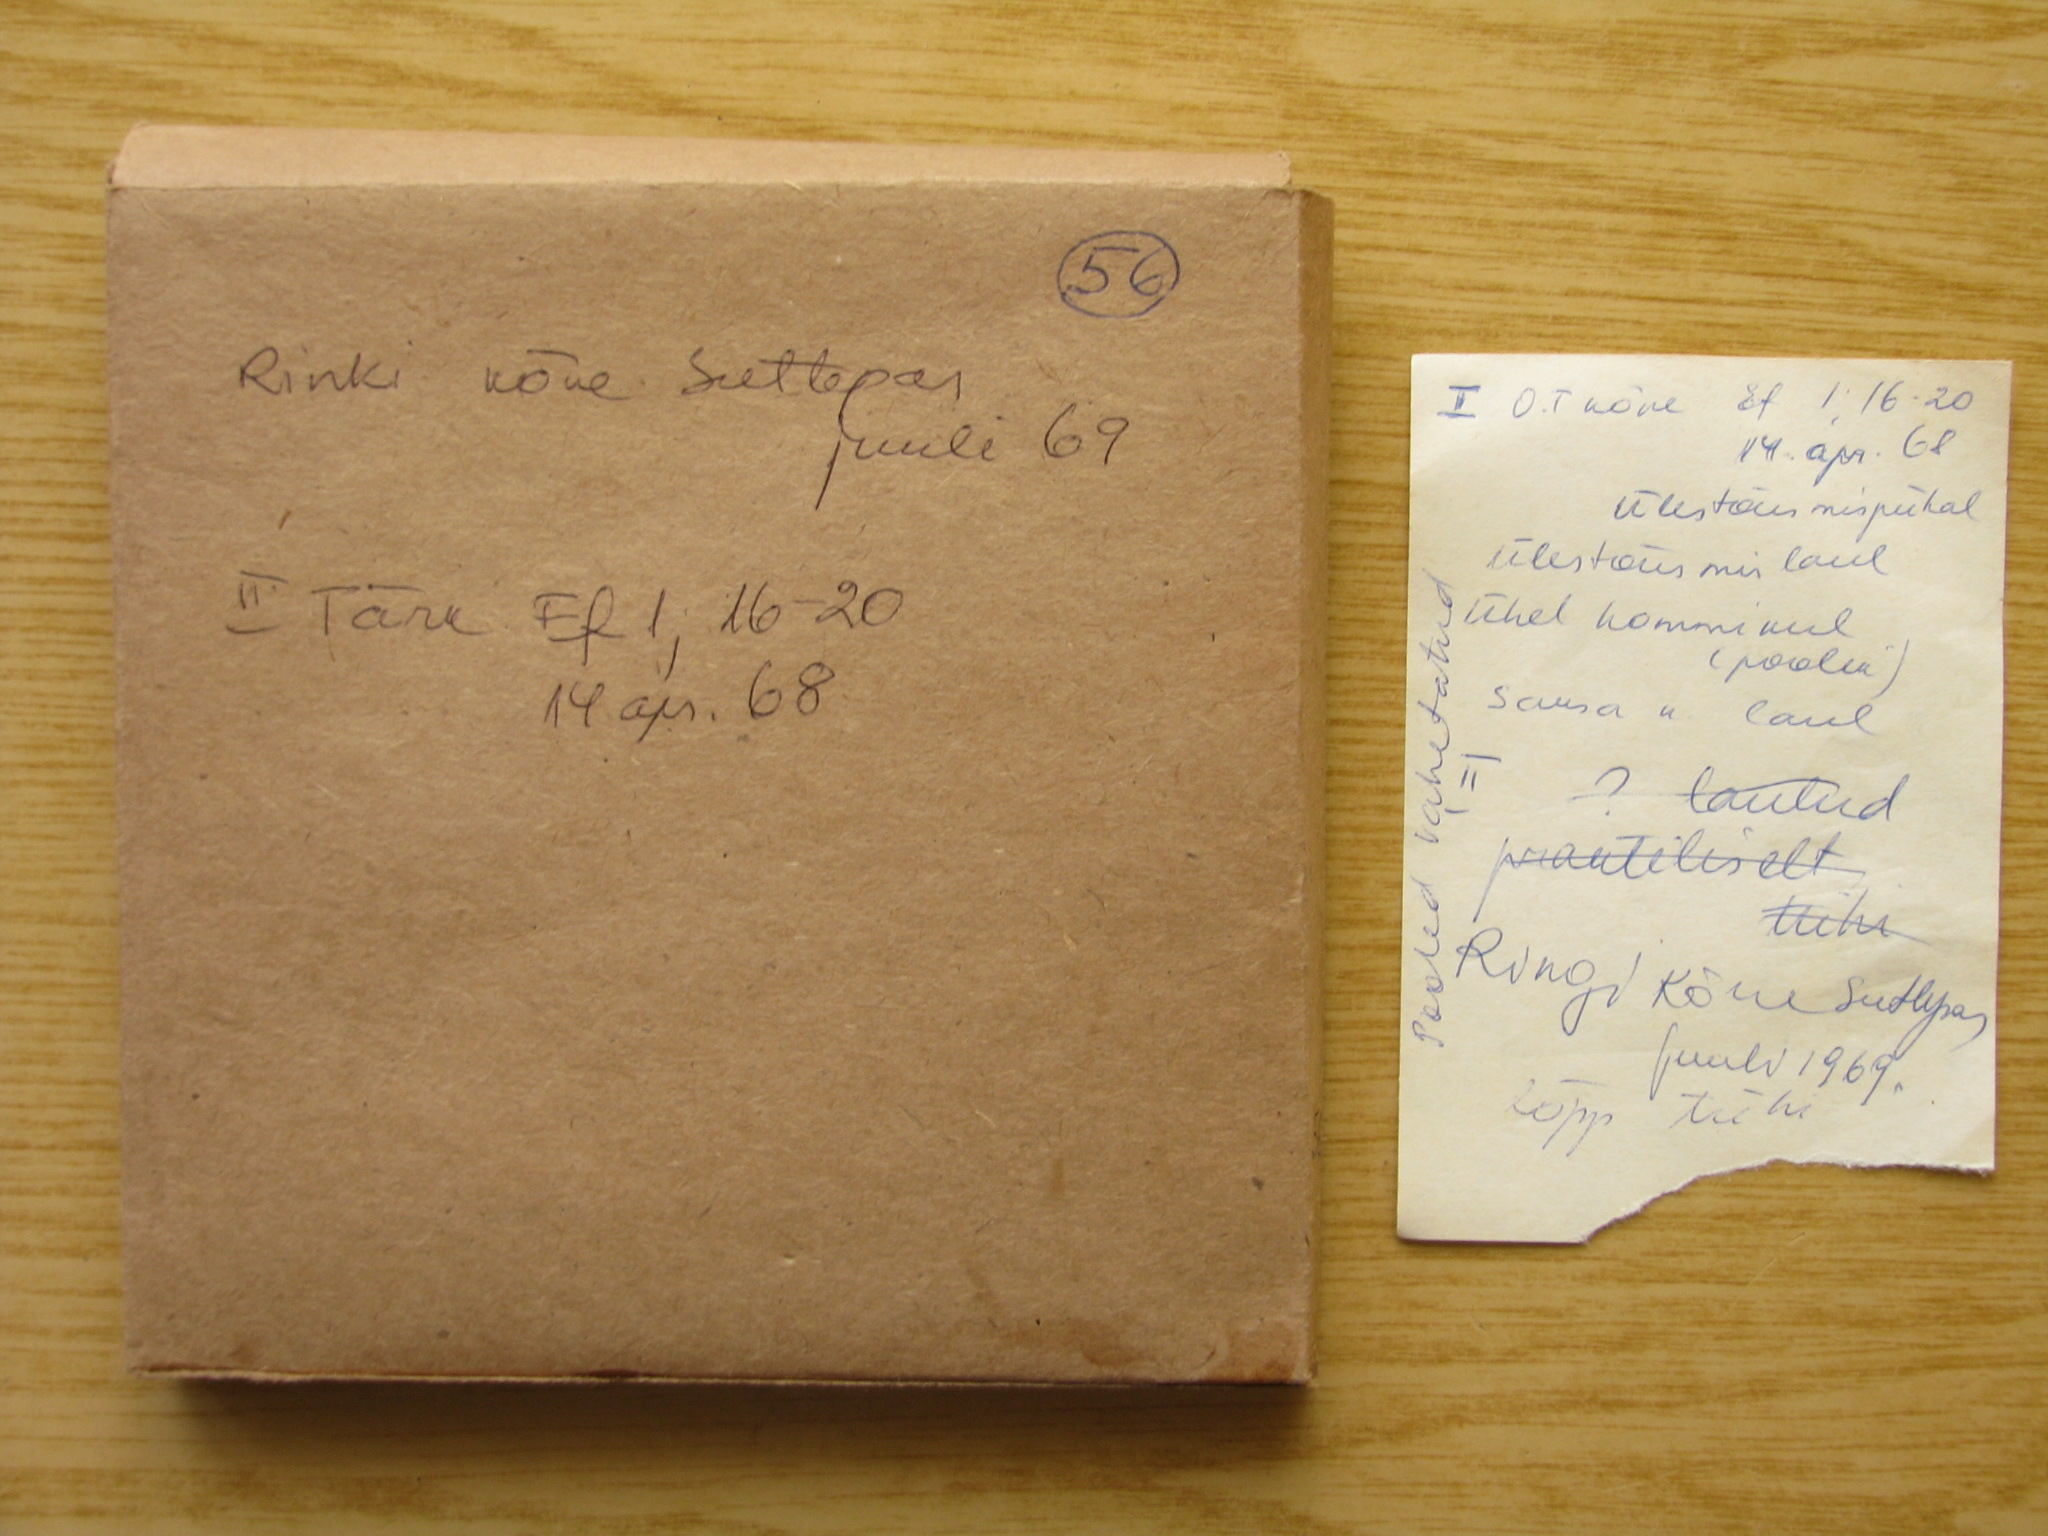 56
Rinki kõne Sutlepas
juuli 69
II Tärk Ef 1; 16-20
14 apr. 68
I O.T kõne Ef 1; 16-20
14. apr. 68
Ülestõusmispühal
Ülestõusmis laul
Ühel hommikul
(poolik)
Saksa k laul
? lautud
praktiliselt
tühi
Ringi Kõne Sutlepas
juuli 1969.
Lõpp tühi
Pooled vahetatud
=